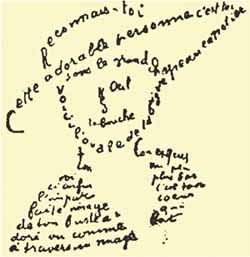 Reconnais-toi
Cette adorable personne c'est toi
sous le grand chapeau canotier
Œil
Nez
la bouche
Voici l'ovale de ta figure
Ton
cou
exquis
voi
ci enfin
l'impar
faite image
de ton buste a
doré vu comme
à travers un nuage
un peu
plus bas
c'est ton
coeur
qui
bat